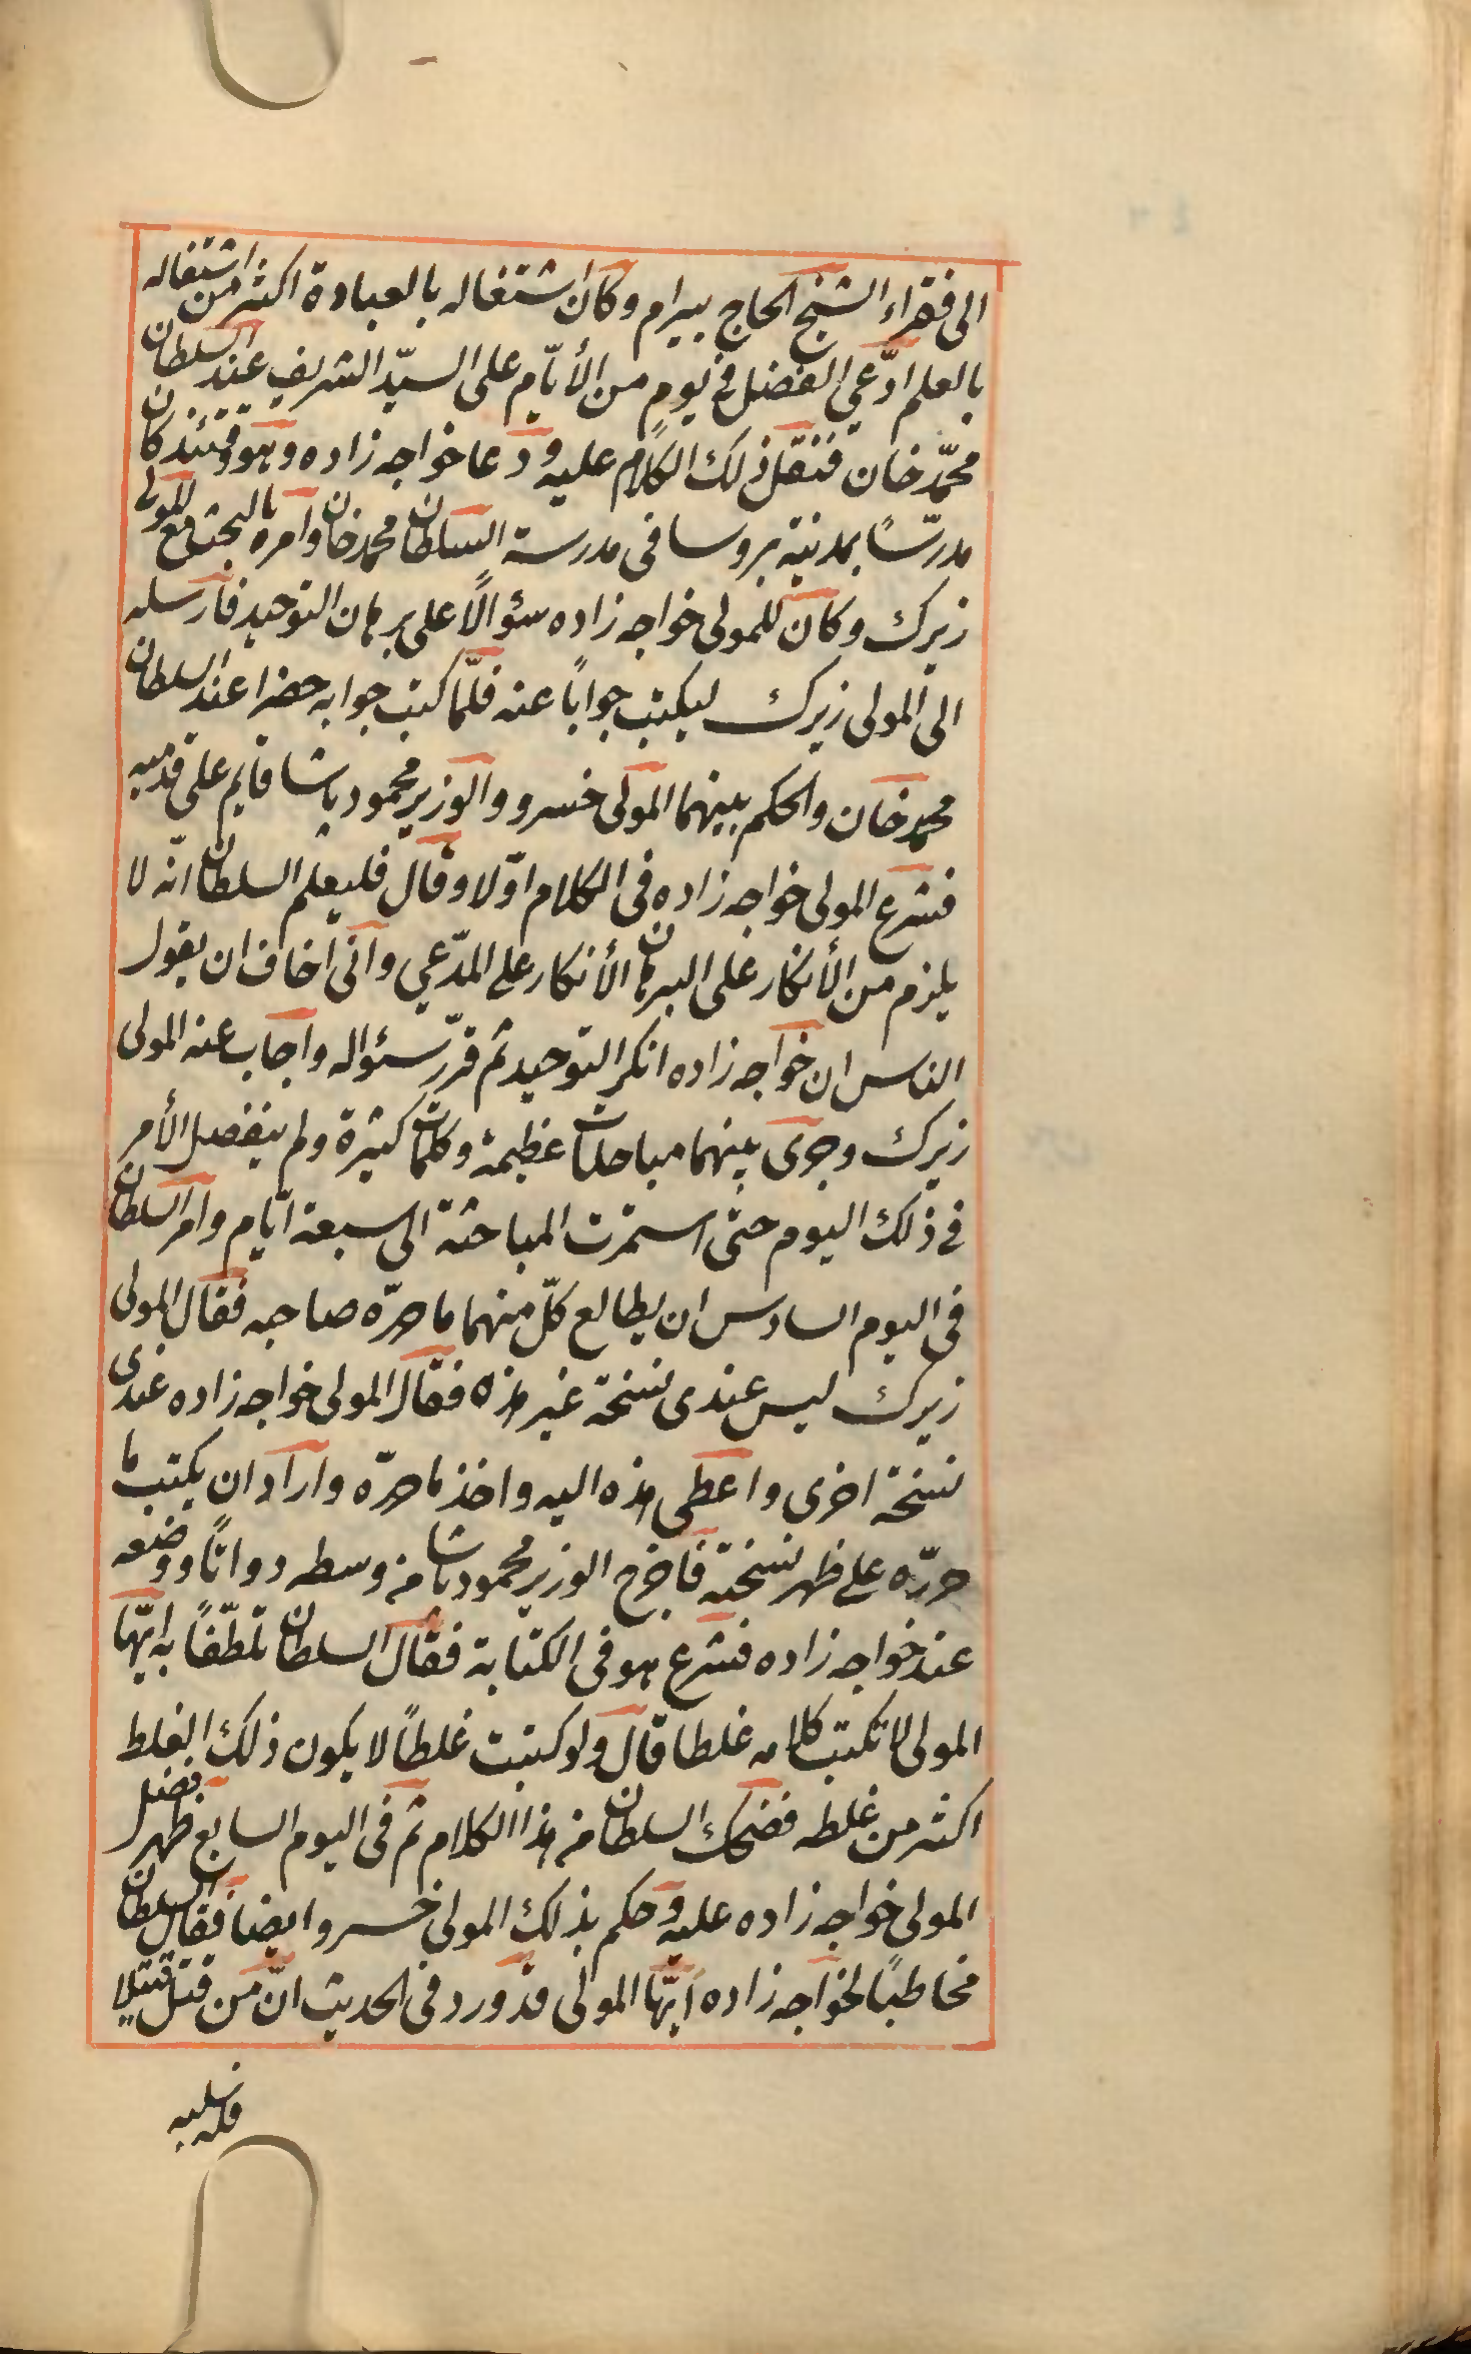 الى فقراء الشيخ الحاج بيرام وكان اشتغاله بالعبادة اكثر من اشتغاله
بالعلم ادّعى الفضل في يوم من الأيّام على السيّد الشريف عند السلطان
محمّد خان فنقل ذلك الكلام عليه ودعا خواجه زاده وهو وقتئذ كان
مدرّسًا بمدينة بروسا فى مدرسة السلطان محمد خان وامره بالبحث مع المولى
زيرك وكان للمولى خواجه زاده سؤالًا على برهان التوحيد فأرسله
الى المولى زيرك ليكتب جوابًا عنه فلمّا كتب جوابه حضرا عند السلطان
محمد خان والحكم بينهما المولى خسرو والوزير محمود پاشا قايم على قدميه
فشرع المولى خواجه زاده فى الكلام اوّلا وقال فليعلم السلطان انّه لا
يلزم من الأنكار على البرهان الأنكار على المدّعي وانى اخاف ان يقول
الناس ان خواجه زاده انكر التوحيد ثم قرّر سئواله واجاب عنه المولى
زيرك وجرى بينهما مباحثات عظيمة وكلمات كثيرة ولم ينفصل الأمر
في ذلك اليوم حتى استمرت المباحثة الى سبعة ايّام وامر السلطان
فى اليوم السادس ان يطالع كلّ منهما ما حرّره صاحبه فقال المولى
زيرك ليس عندى نسخة غير هذه فقال المولى خواجه زاده عندى
نسخة اخرى واعطى هذه اليه واخذ ما حرّره واراد ان يكتب ما
حرّره على ظهر نسخته فاخرج الوزير محمود پاشا من وسطه دواتًا ووضعه
عند خواجه زاده فشرع هو فى الكتابة فقال السلطان تلطّفًا به ايّها
المولى لا تكتب كلامه غلطا قال ولو كتبت غلطًا لا يكون ذلك الغلط
اكثر من غلطه فضحك السلطان من هذا الكلام ثم فى اليوم السابع ظهر فضل
المولى خواجه زاده عليه وحكم بذلك المولى خسرو ايضا فقال السلطان
مخاطبًا لخواجه زاده ايّها المولى قد ورد فى الحديث انّ من قتل قتيلا
فله سلبه